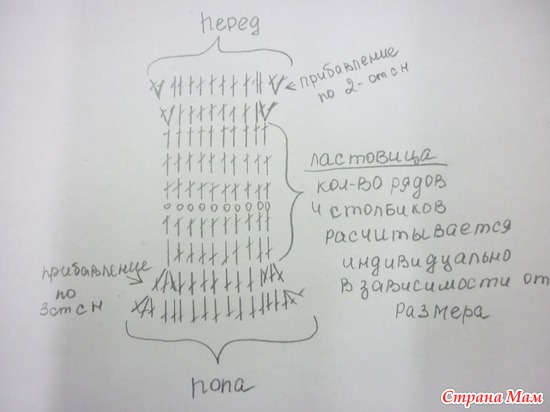 перед
прибавление
по 2-ст сн
ластовица
кол-во рядов
и столбиков
расчитывается
индивидуально
в зависимости от
размера
прибавление
по
3ст сн
попа
Страна Мам